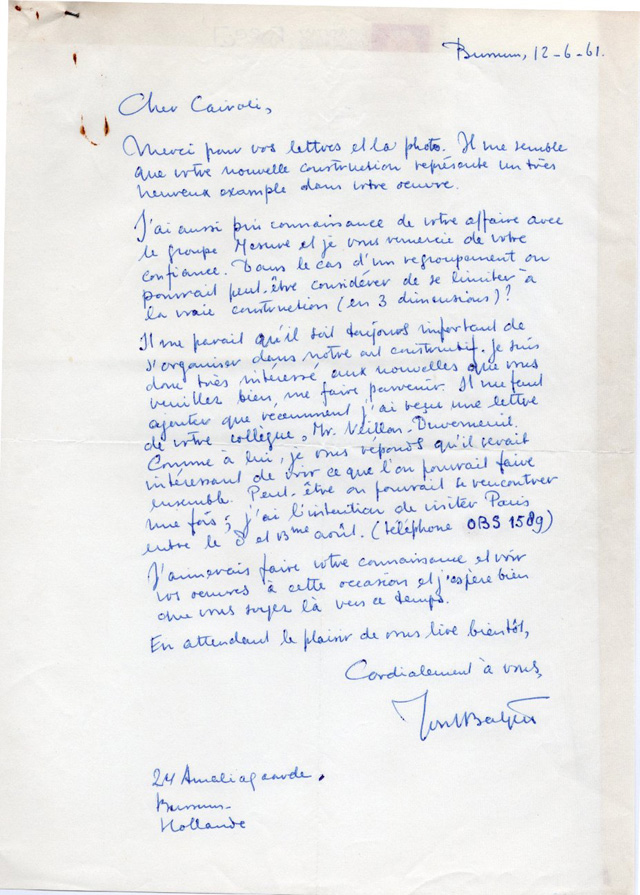 Bussum, 12-6-61.
Cher Cairoli,
Merci pour vos lettres et la photo. Il me semble
que votre nouvelle construction représente un très
heureux example dans votre oeuvre.
J'ai aussi pris connaissance de votre affaire avec
le groupe Mesure et je vous remercie de votre
confiance. Dans le cas d'un regroupement on
pourrait peut-être considérer de se limiter à
la vraie construction (en 3 dimensions)?
Il me parait qu'il soit toujours important de
s'organiser dans notre art constructif. Je suis
donc très intéressé aux nouvelles que vous
veuillez bien me faire parvenir. Il me faut
ajouter que récemment j'ai reçu une lettre
de votre collègue, Mr. Veillon. Duverneuil.
Comme à lui, je vous réponds qu'il serait
intéressant de voir ce que l'on pourrait faire
ensemble. Peut-être on pourrait se rencontrer
une fois; j'ai l'intention de visiter Paris
entre le et 13me août. (téléphone OBS 1589)
J'aimerais faire votre connaissance et voir
vos oeuvres à cette occasion et j'espère bien
que vous soyez là vers ce temps.
En attendant le plaisir de vous lire bientôt,
Cordialement à vous,
24 Ameliagaarde.
Bussum-
Hollande